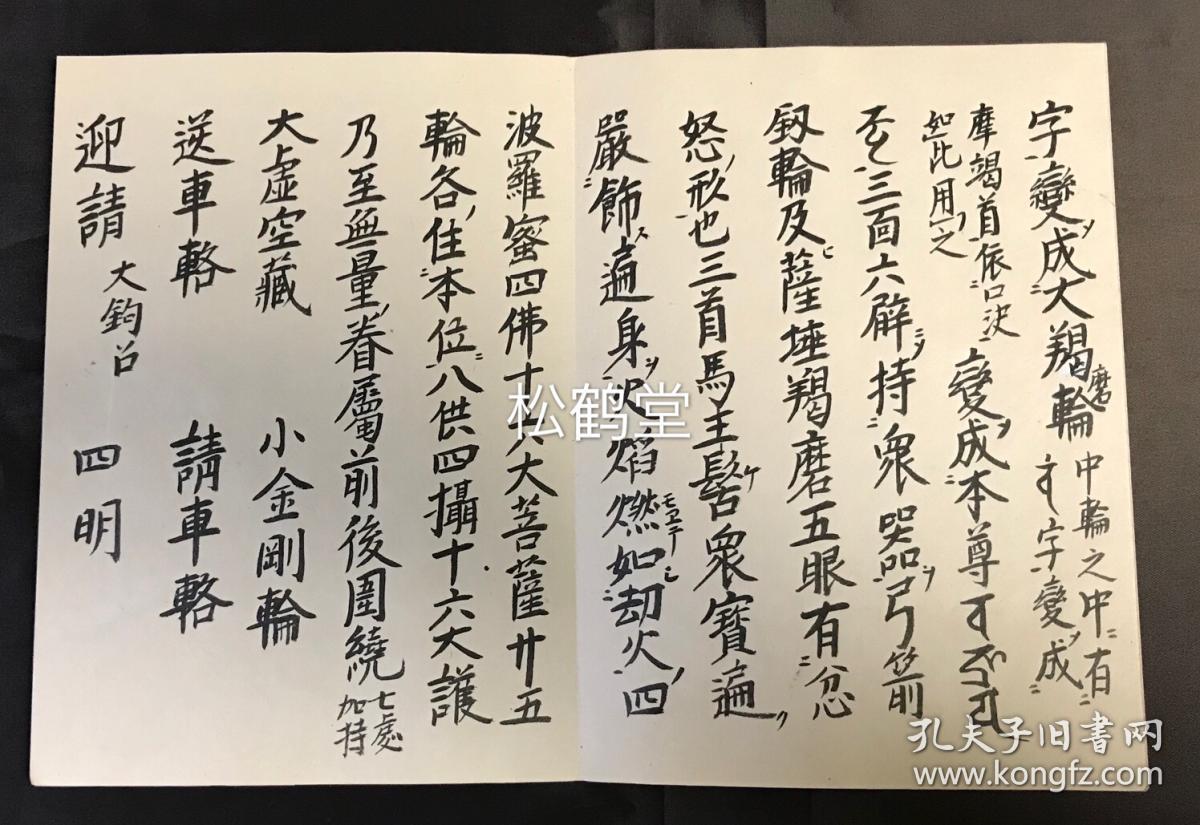 字變成大羯磨輪 中輪之中有 字變成
摩竭首依口决
如此用之
變成本尊
三面六臂持衆器弓箭
釼輪及薩埵羯磨五眼有忿
怒形也三首馬王髻衆寶遍
嚴飾遍身火焰燃モユ如劫火四
波羅蜜四佛十六大菩薩廿五
輪各住本位八供四攝十六大護
乃至無量眷屬前後圍繞 七處加持
大虛空藏 小金剛輪
送車輅 請車輅
迎請 大鉤召 四明
松鹤堂
孔夫子旧书网
www.kongfz.com